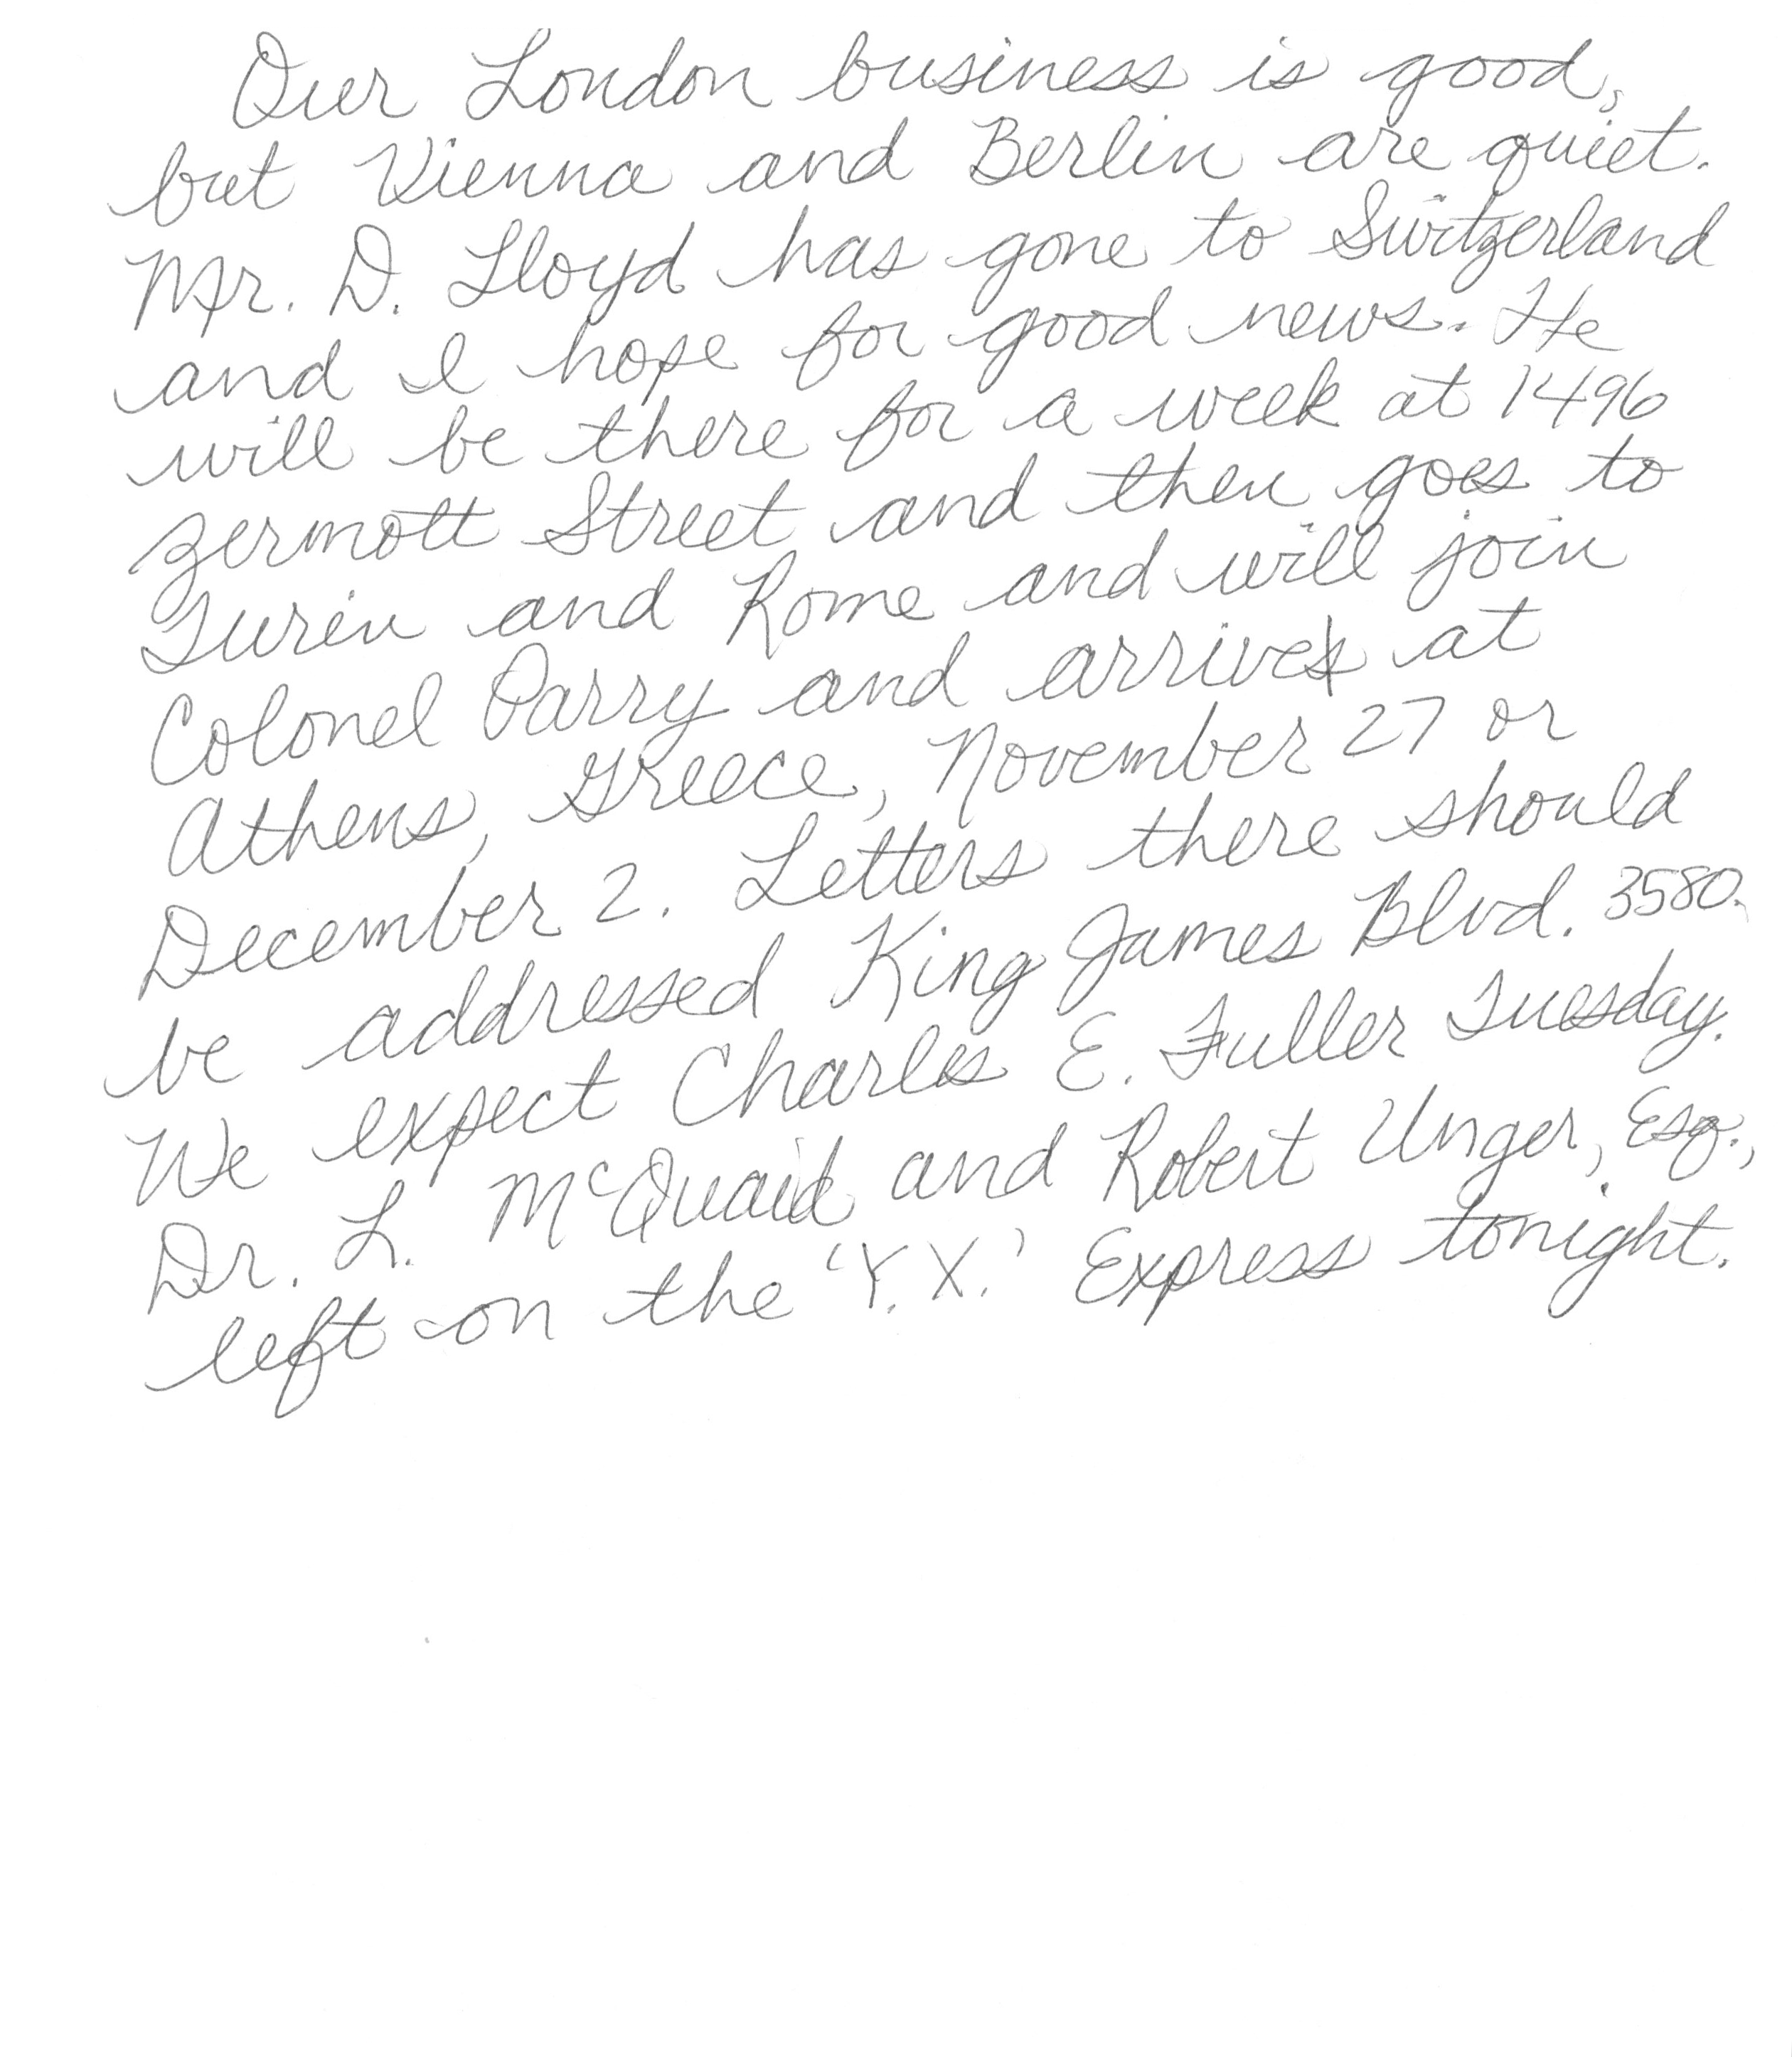 Our London business is good,
but Vienna and Berlin are quiet.
Mr. D. Lloyd has gone to Switzerland
and I hope for good news. He
will be there for a week at 1496
Zermott Street and then goes to
Turin and Rome and will join
Colonel Parry and arrive at
Athens, Greece, November 27 or
December 2. Letters there should
be addressed King James Blvd. 3580.
We expect Charles E. Fuller Tuesday.
Dr. L. McQuaid and Robert Unger, Esq.,
left on the 'Y.X.' Express tonight.